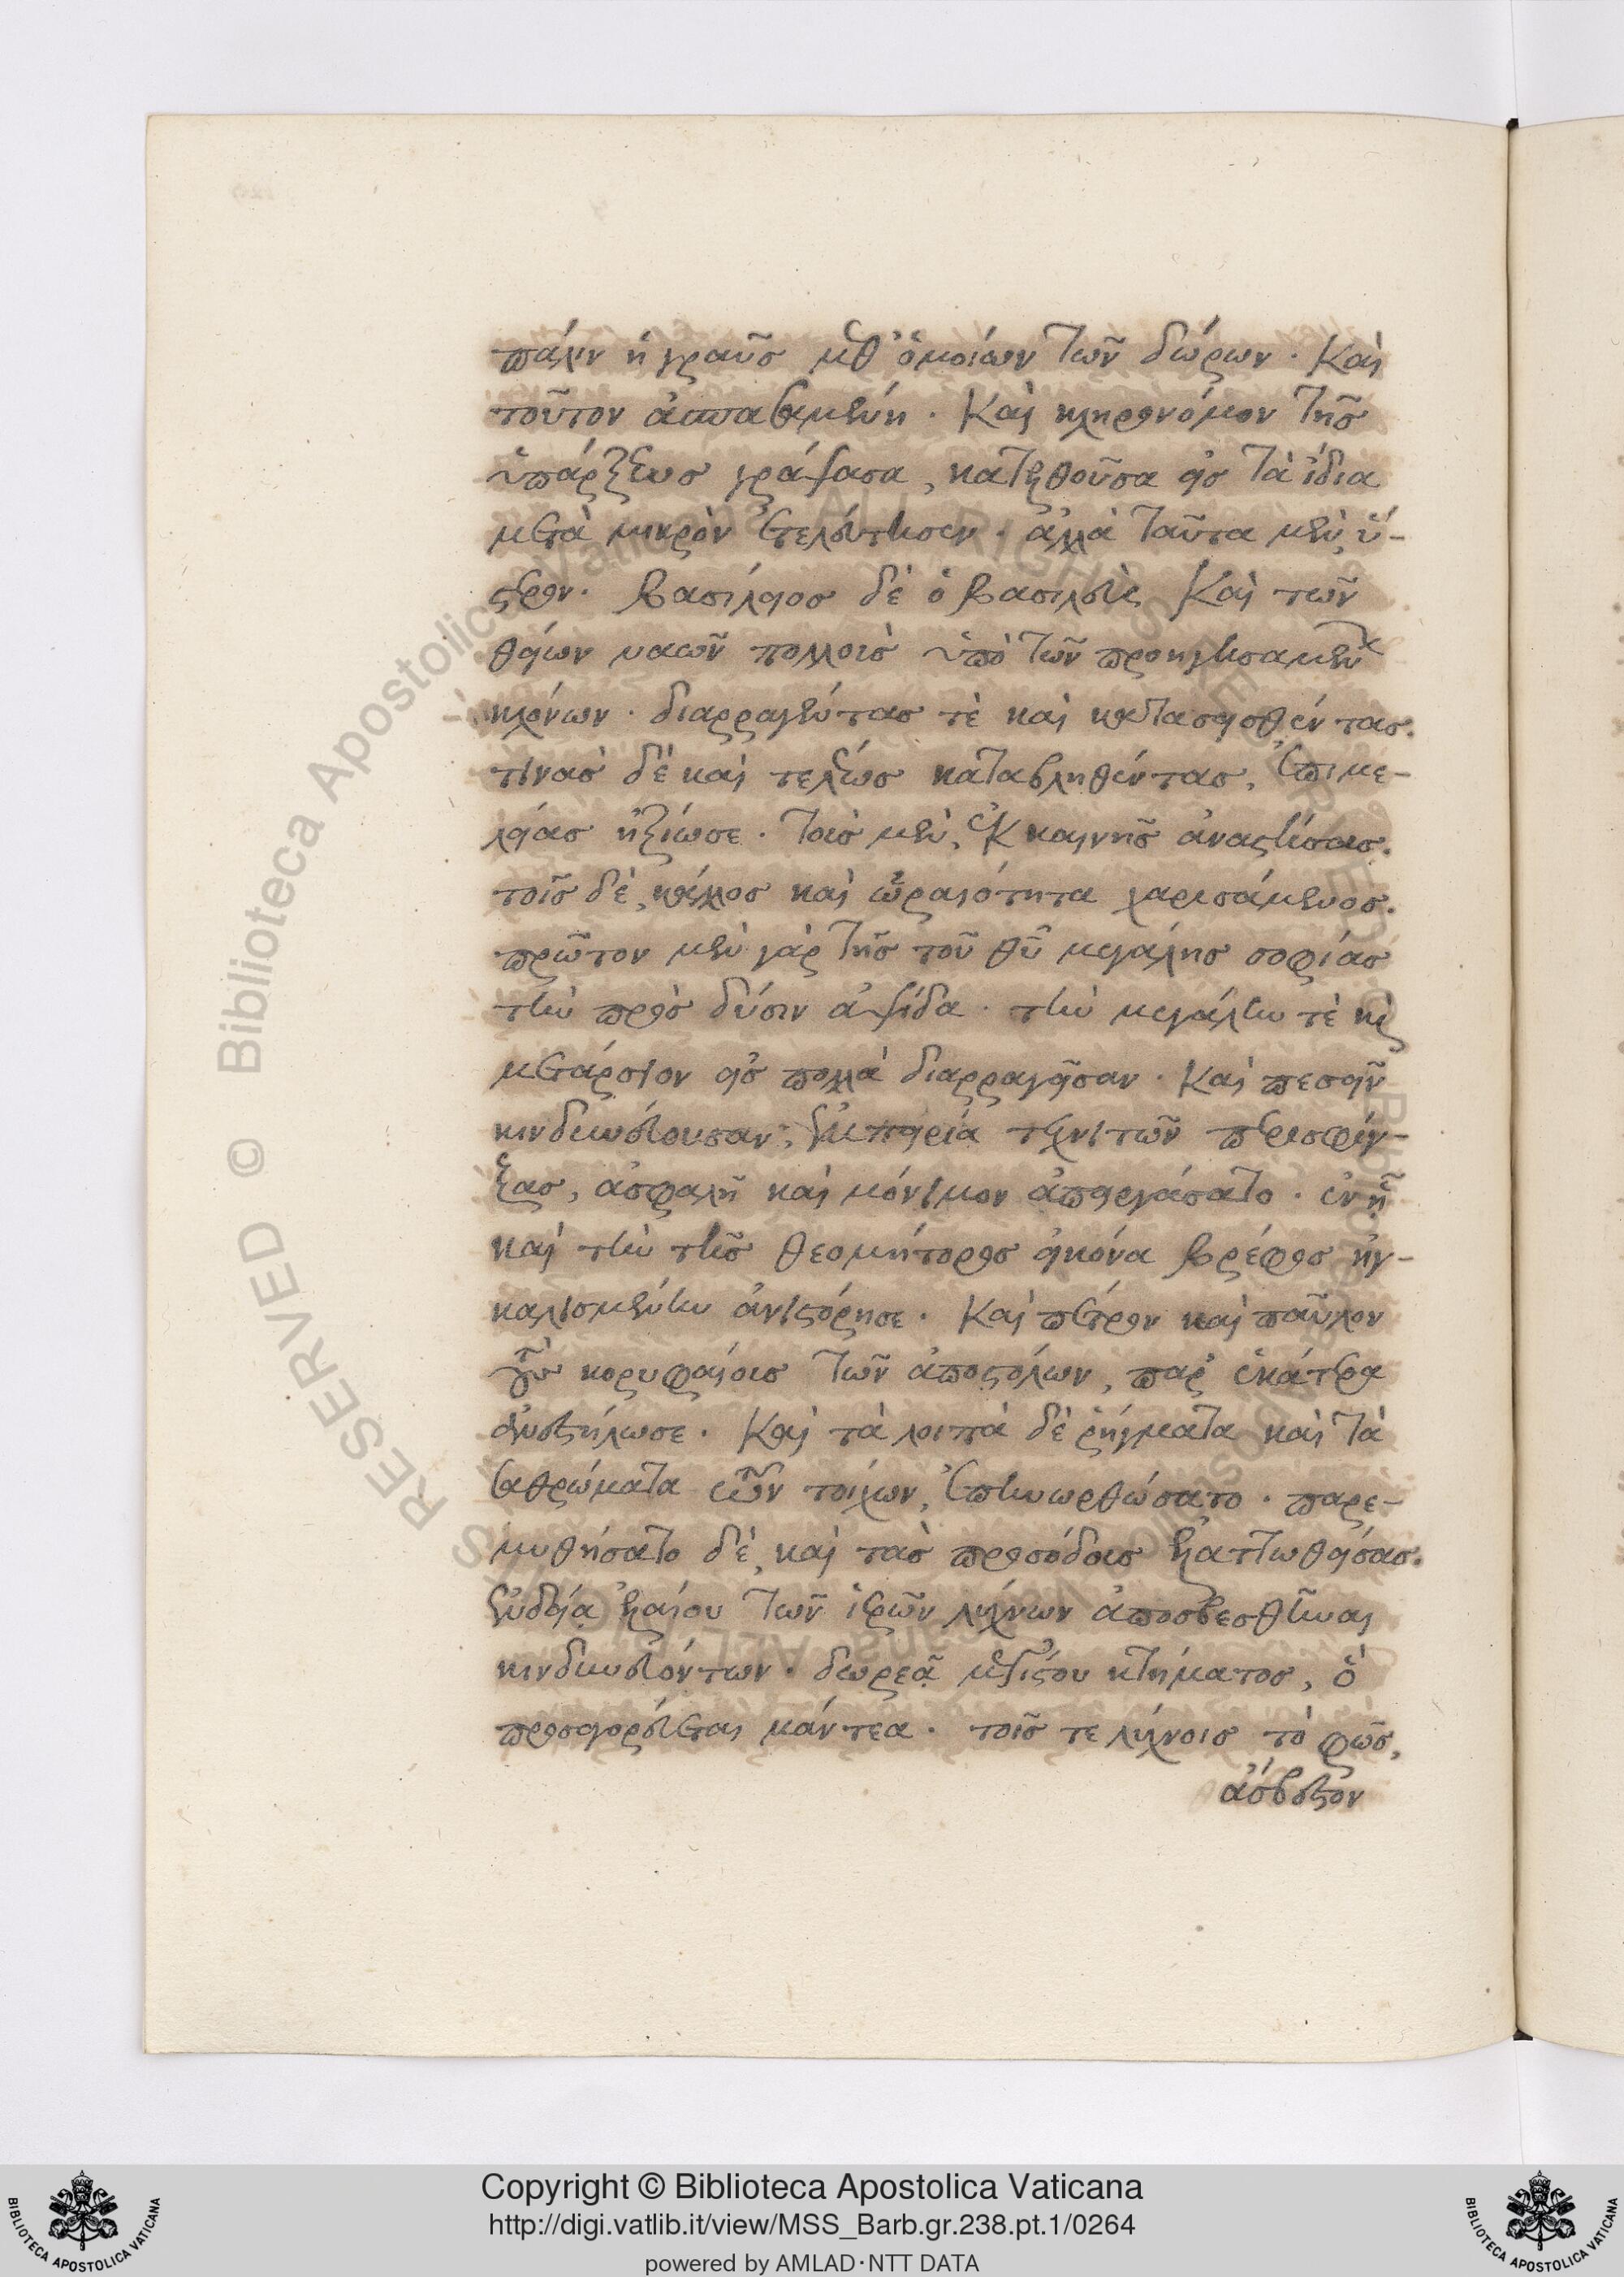 πάλιν ἡ γραῦς μεθ' ὁμοίων τῶν δώρων. Καὶ
τοῦτον ἀσπασαμένη. Καὶ κληρονόμον τῆς
ὑπάρξεως γράψασα, κατελθοῦσα εἰς τὰ ἴδια
μετὰ μικρὸν ἐτελεύτησεν. ἀλλὰ ταῦτα μὲν, ὕ-
στερον. βασίλειος δὲ ὁ βασιλεὺς Καὶ τῶν
θείων ναῶν πολλοὺς ὑπὸ τῶν προηγησαμένων
κλόνων. διαρραγέντας τὲ καὶ κατασεισθέντας.
τινὰς δὲ καὶ τελείως καταβληθέντας, ἐπιμε-
λείας ἠξίωσε. τοὺς μὲν, ἐκ καινῆς ἀναστήσας.
τοῖς δὲ, κάλλος καὶ ὡραιότητα χαρισάμενος.
πρῶτον μὲν γὰρ τῆς τοῦ θῦ μεγάλης σοφίας
τὴν πρὸς δύσιν ἀψίδα. τὴν μεγάλην τὲ καὶ
μετάρσιον εἰς πολλὰ διαρραγεῖσαν. Καὶ πεσεῖν
κινδυνεύουσαν, ἐμπειρία τεχνιτῶν περισφίγ-
ξας, ἀσφαλῆ καὶ μόνιμον ἀπειργάσατο. ἐν ᾗ
καὶ τὴν τῆς θεομήτορος εἰκόνα βρέφος ἠγ-
καλισμένην ἀνιστόρησε. Καὶ πέτρον καὶ παῦλον
τοὺς κορυφαίους τῶν ἀποστόλων, παρ' ἑκάτερα
ἐνεστήλωσε. Καὶ τὰ λοιπὰ δὲ ῥήγματα καὶ τὰ
σαθρώματα τῶν τοίχων, ἐπηνωρθώσατο. παρε-
μυθήσατο δὲ, καὶ τὰς προσόδους ἐλαττωθείσας.
ἐνδεία ἐλαίου τῶν ἱερῶν λύχνων ἀποσβεσθῆναι
κινδυνευόντων. δωρεᾷ μεγίστου κτήματος, ὃ
προσαγορεύεται μάντεα. τοῖς τε λύχνοις τὸ φῶς,
ἄσβεστον
Copyright © Biblioteca Apostolica Vaticana
http://digi.vatlib.it/view/MSS_Barb.gr.238.pt.1/0264
powered by AMLAD·NTT DATA